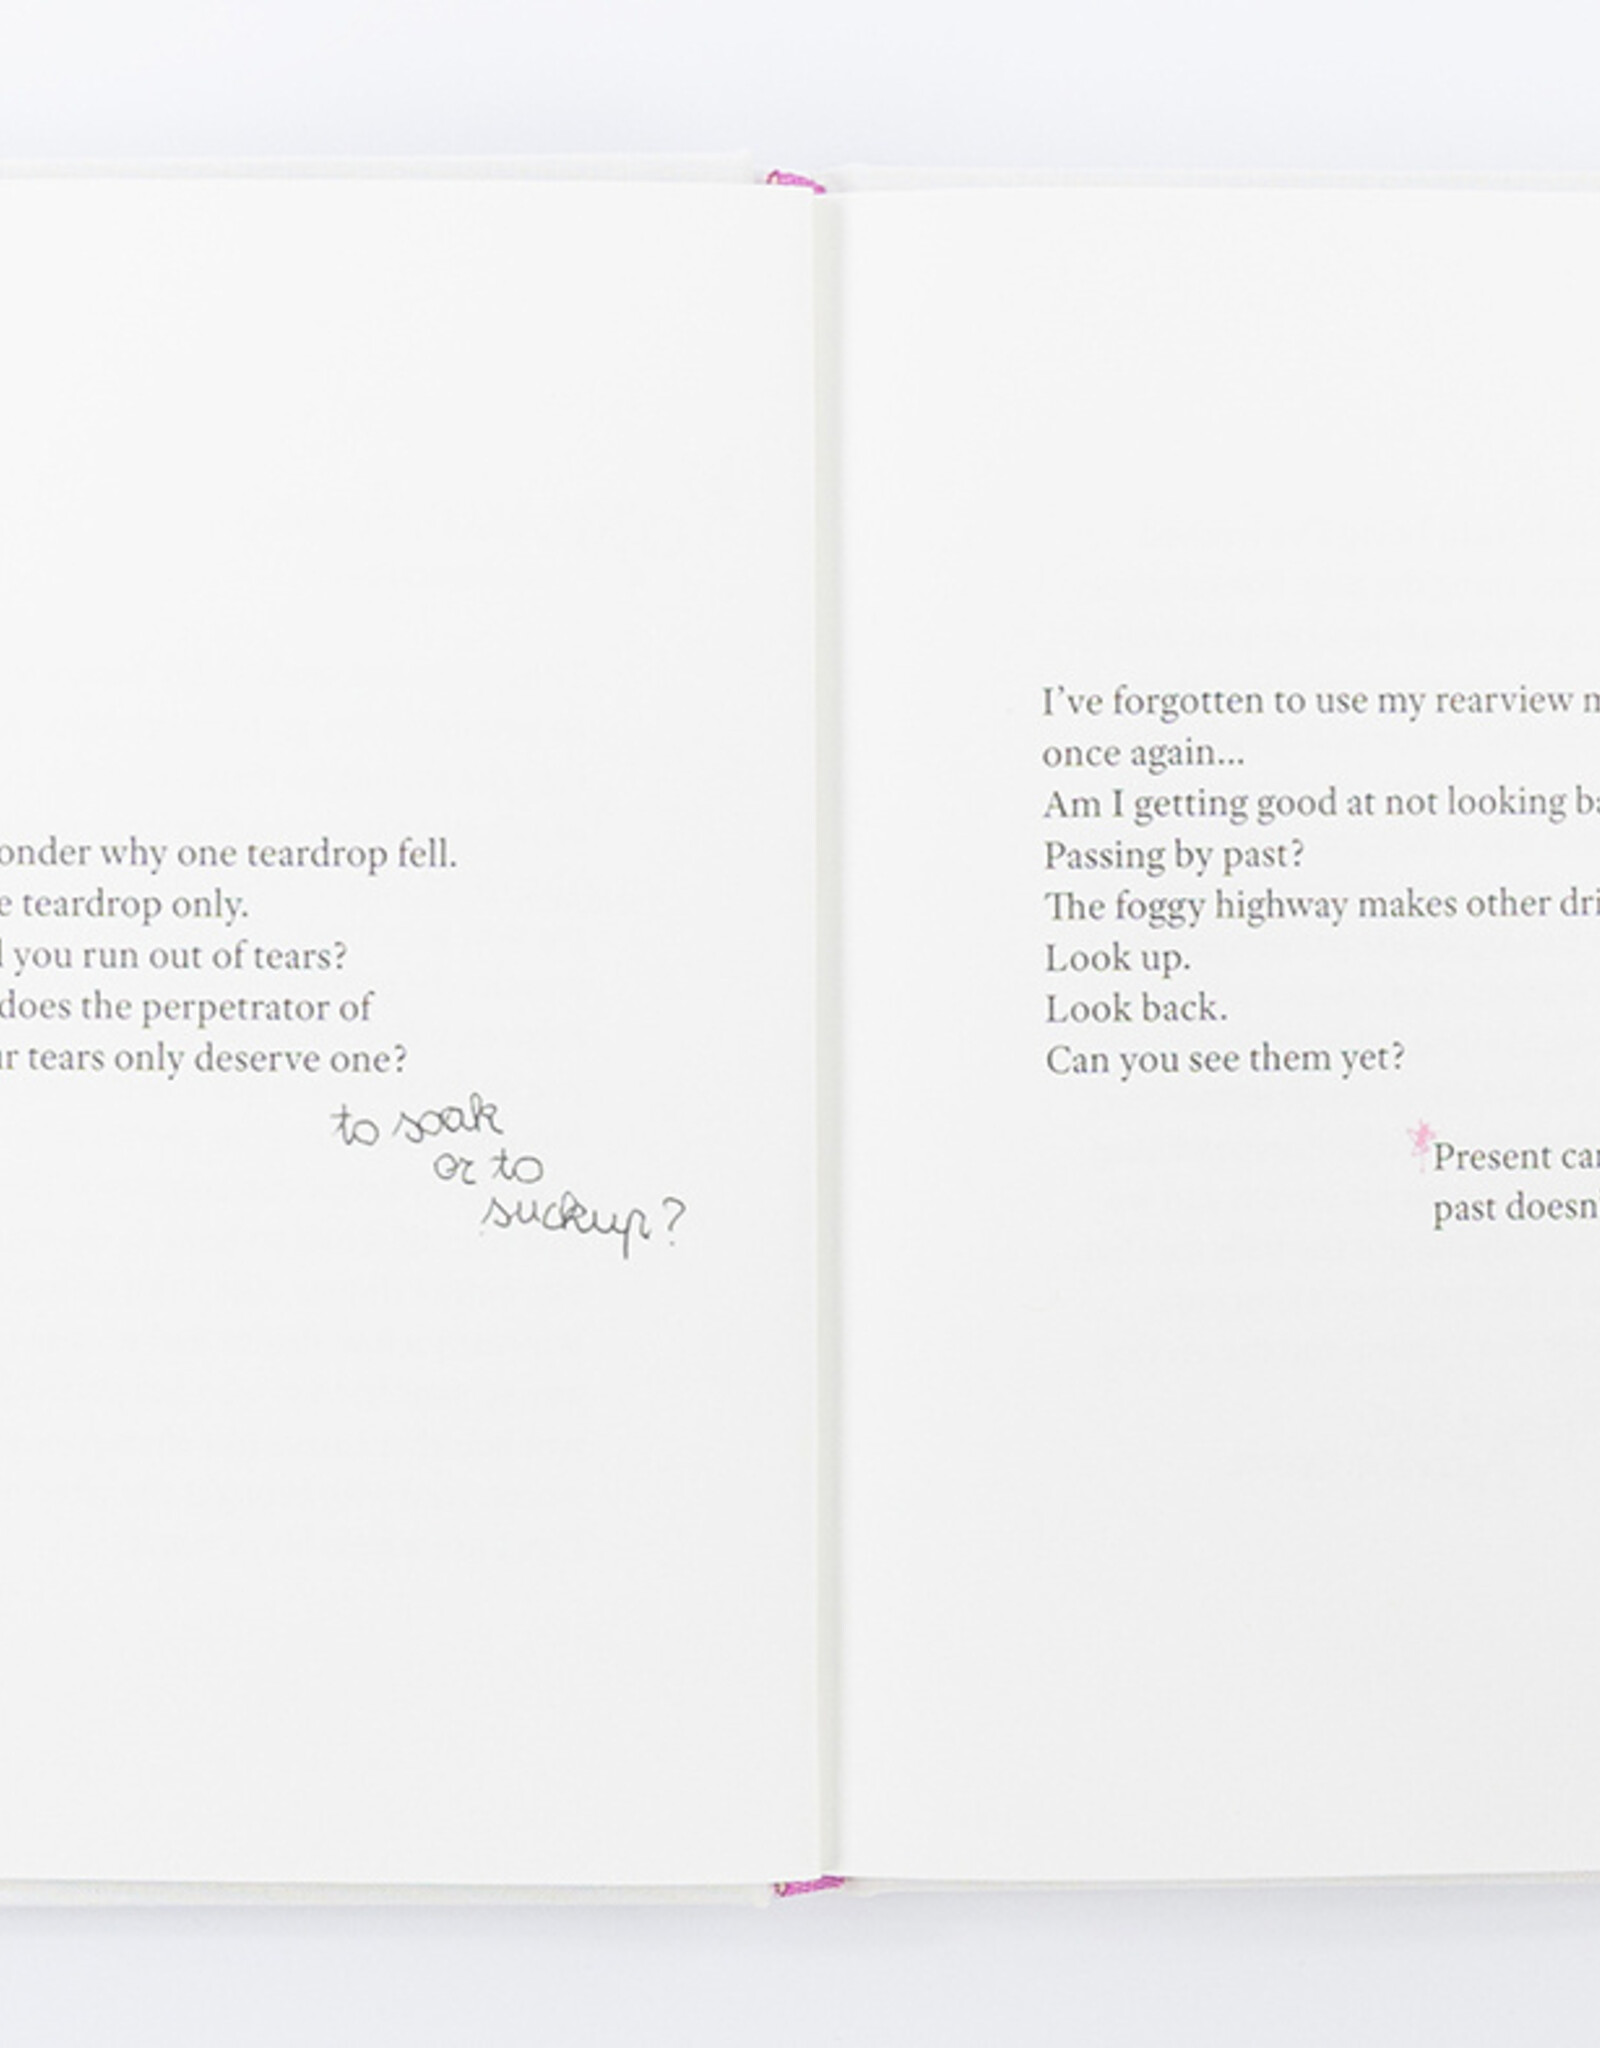 onder why one teardrop fell.
e teardrop only.
you run out of tears?
does the perpetrator of
r tears only deserve one?
to soak
or to
suckup?
I've forgotten to use my rearview m
once again...
Am I getting good at not looking ba
Passing by past?
The foggy highway makes other dri
Look up.
Look back.
Can you see them yet?
Present can
past doesn'